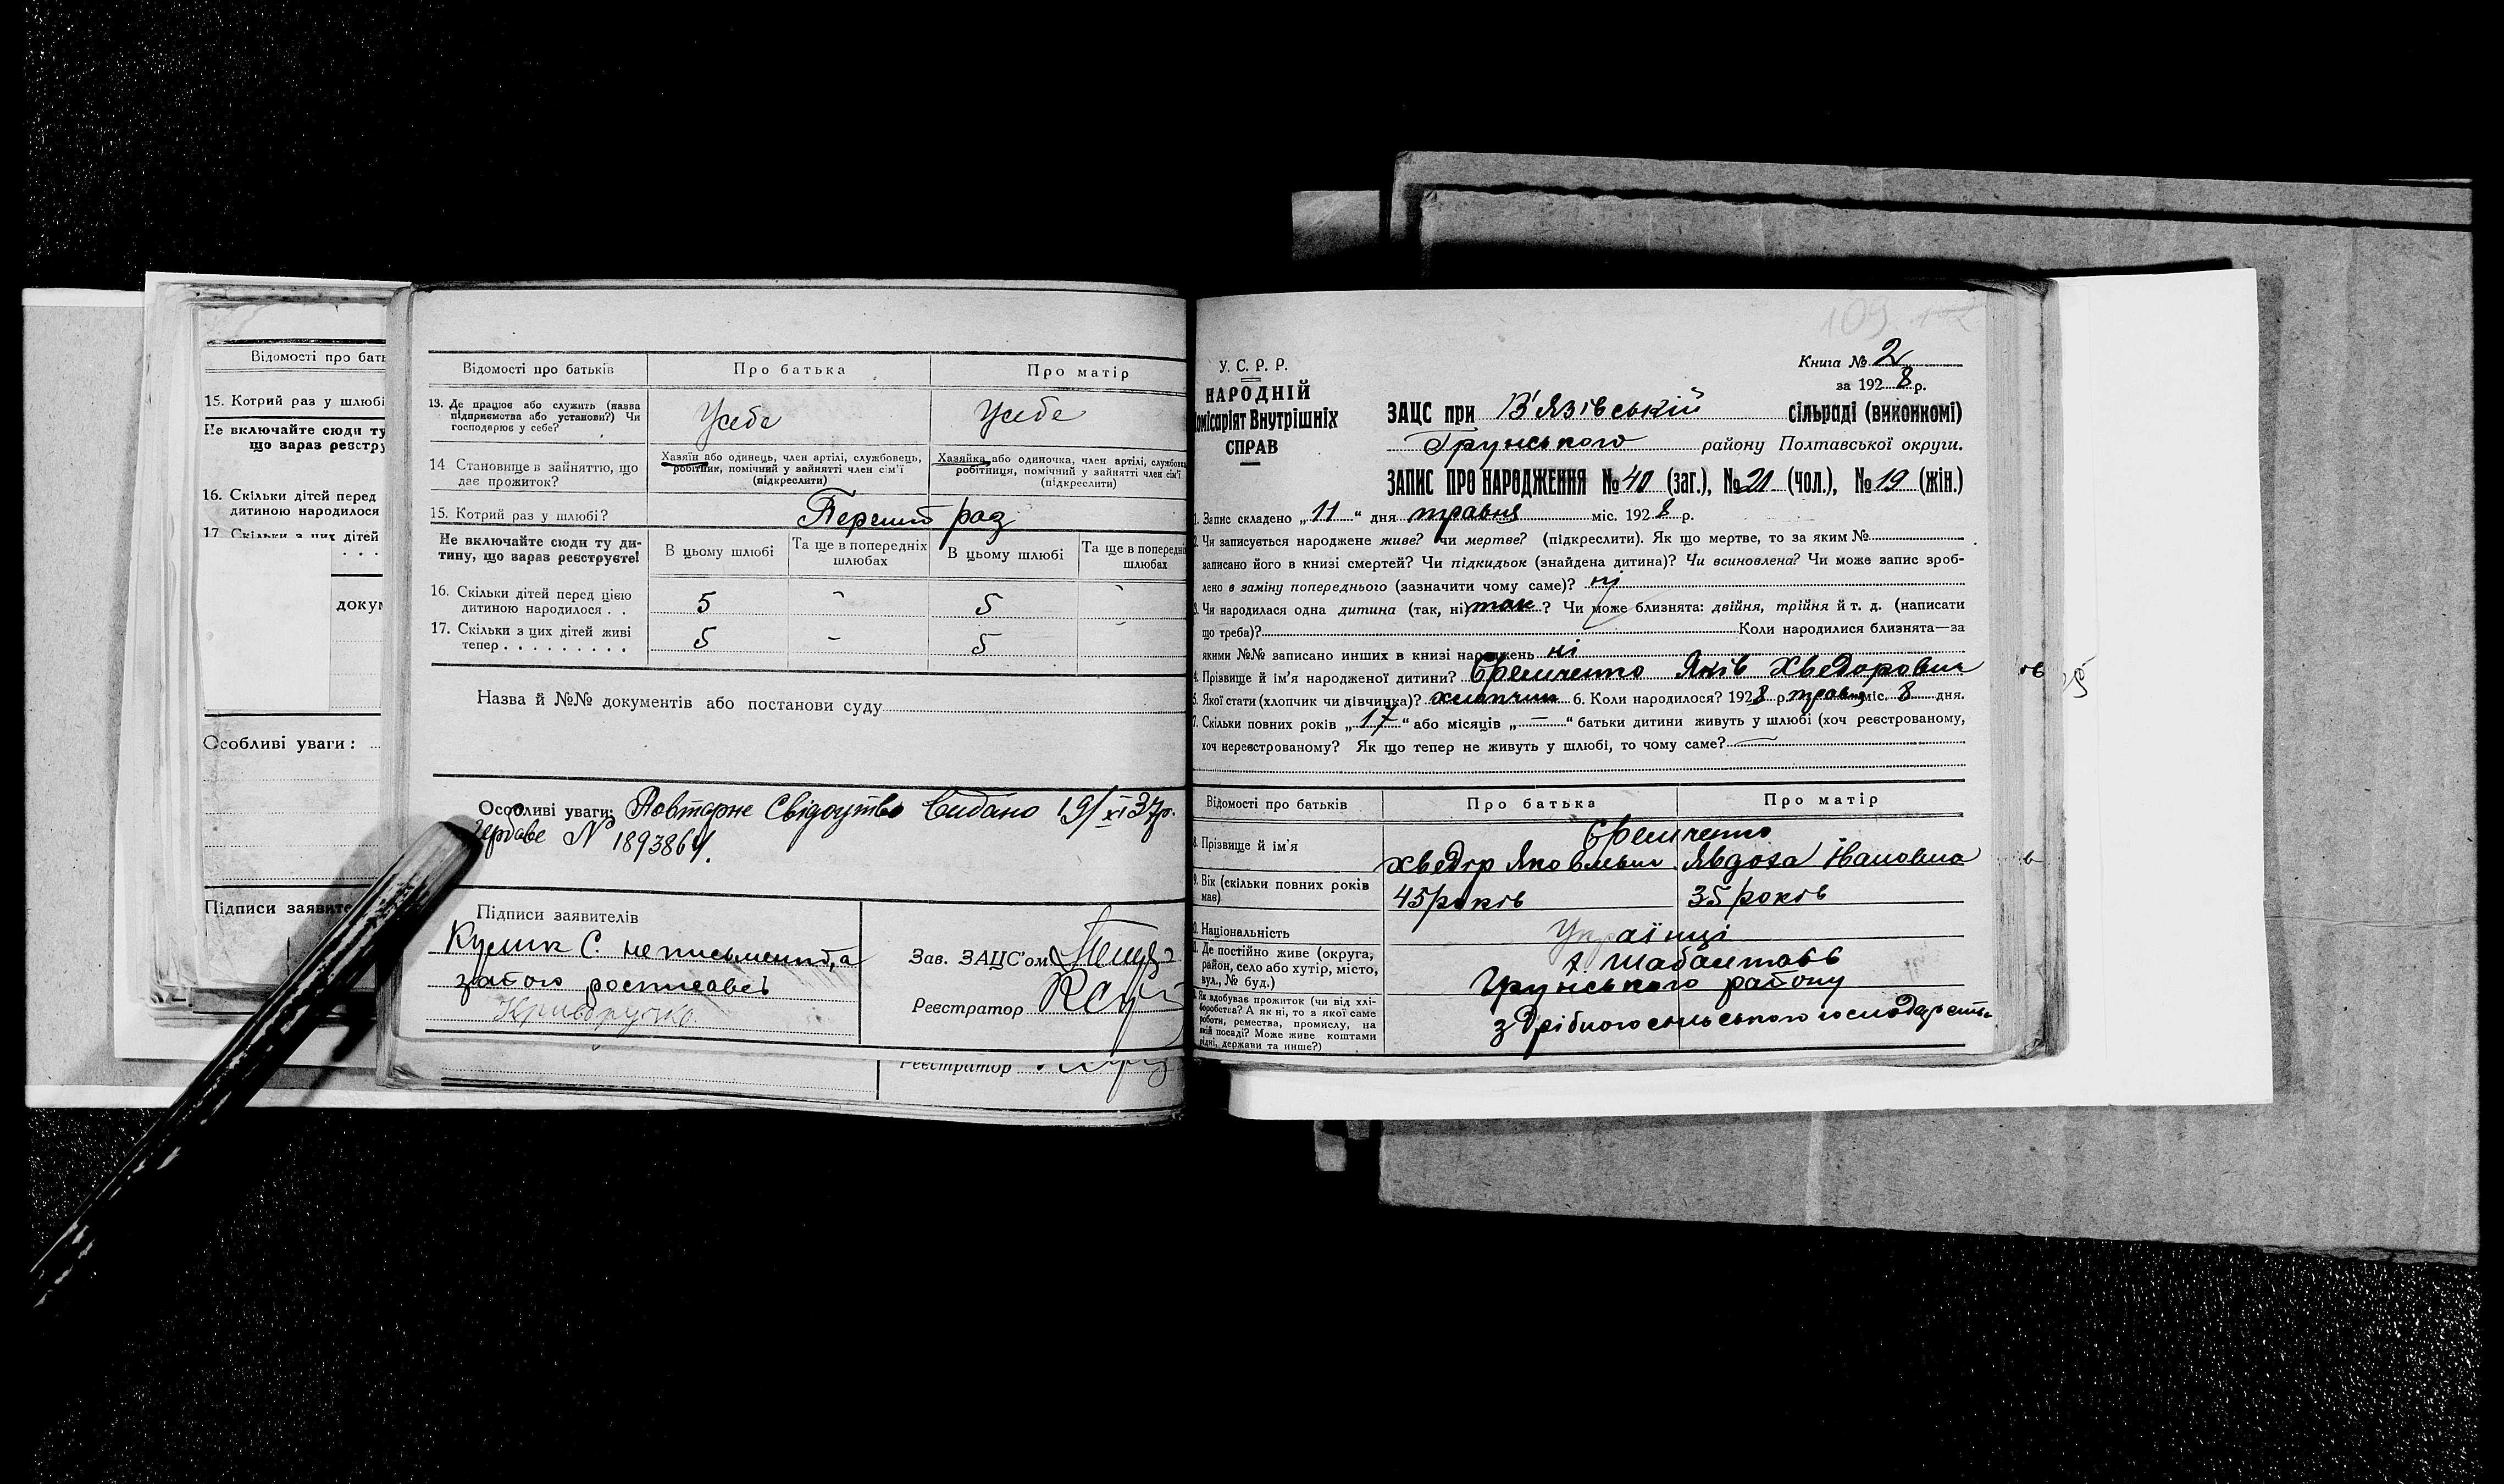 Відомості про бать
15. Котрий раз у шлюбі
Не включайте сюди ту
що зараз реєстру
16. Скільки дітей перед
дитиною народилося
17. Скільки з цих дітей
докум
Особливі уваги:
Підписи заявите
Відомості про батьків Про батька Про матір
13. Де працює або служить (назва підприємства або установи?) Чи господарює у себе?
У себе У себе
14 Становище в зайняттю, що дає прожиток?
Хазяїн або одинець, член артілі, службовець, робітник, помічний у зайнятті член сім'ї (підкреслити)
Хазяйка або одиночка, член артілі, службов робітниця, помічний у зайнятті член сім'ї (підкреслити)
15. Котрий раз у шлюбі? Перший раз
Не включайте сюди ту дитину, що зараз реєструєте!
В цьому шлюбі Та ще в попередніх шлюбах В цьому шлюбі Та ще в попередні шлюбах
16. Скільки дітей перед цією дитиною народилося . . 5 - 5 -
17. Скільки з цих дітей живі тепер . . . . . . . . . 5 - 5 -
Назва й №№ документів або постанови суду
Особливі уваги: Повторне Свідоцтво Видано 19/XI 37р.
№ 1893864.
Підписи заявителів
Кулик С. неписьменний, а
за його росписавсь
Криворучко
Зав. ЗАЦС'ом
Реєстратор
Реєстратор
109
У. С. Р. Р.
НАРОДНІЙ
Комісаріят Внутрішніх
СПРАВ
Книга № 2
за 1928 р.
ЗАЦС при В'язівській сільраді (виконкомі)
Грунського району Полтавської округи.
ЗАПИС ПРО НАРОДЖЕННЯ № 40 (заг.), № 21 (чол.), № 19 (жін.)
1. Запис складено „11" дня травня міс. 1928 р.
2. Чи записується народжене живе? чи мертве? (підкреслити). Як що мертве, то за яким №
записано його в книзі смертей? Чи підкидьок (знайдена дитина)? Чи всиновлена? Чи може запис зроб-
лено в заміну попереднього (зазначити чому саме)? ні
3. Чи народилася одна дитина (так, ні) так? Чи може близнята: двійня, трійня й т. д. (написати
що треба)? Коли народилися близнята—за
якими №№ записано инших в книзі народжень ні
4. Прізвище й ім'я народженої дитини? Єремченко Яків Хведорович
5. Якої стати (хлопчик чи дівчинка)? хлопчик 6. Коли народилося? 1928 р. травня міс. 8 дня.
7. Скільки повних років „17" або місяців „—" батьки дитини живуть у шлюбі (хоч реєстрованому,
хоч нереєстрованому? Як що тепер не живуть у шлюбі, то чому саме?
Відомості про батьків Про батька Про матір
Єремченко
8. Прізвище й ім'я Хведір Якович Явдоха Івановна
9. Вік (скільки повних років має) 45 років 35 років
10. Національність Українці
11. Де постійно живе (округа, район, село або хутір, місто, вул., № буд.)
Грунського району
Як здобуває прожиток (чи від хліборобства? А як ні, то з якої саме роботи, ремества, промислу, на якій посаді? Може живе коштами рідні, держави та инше?)
з дрібного сільського господарства